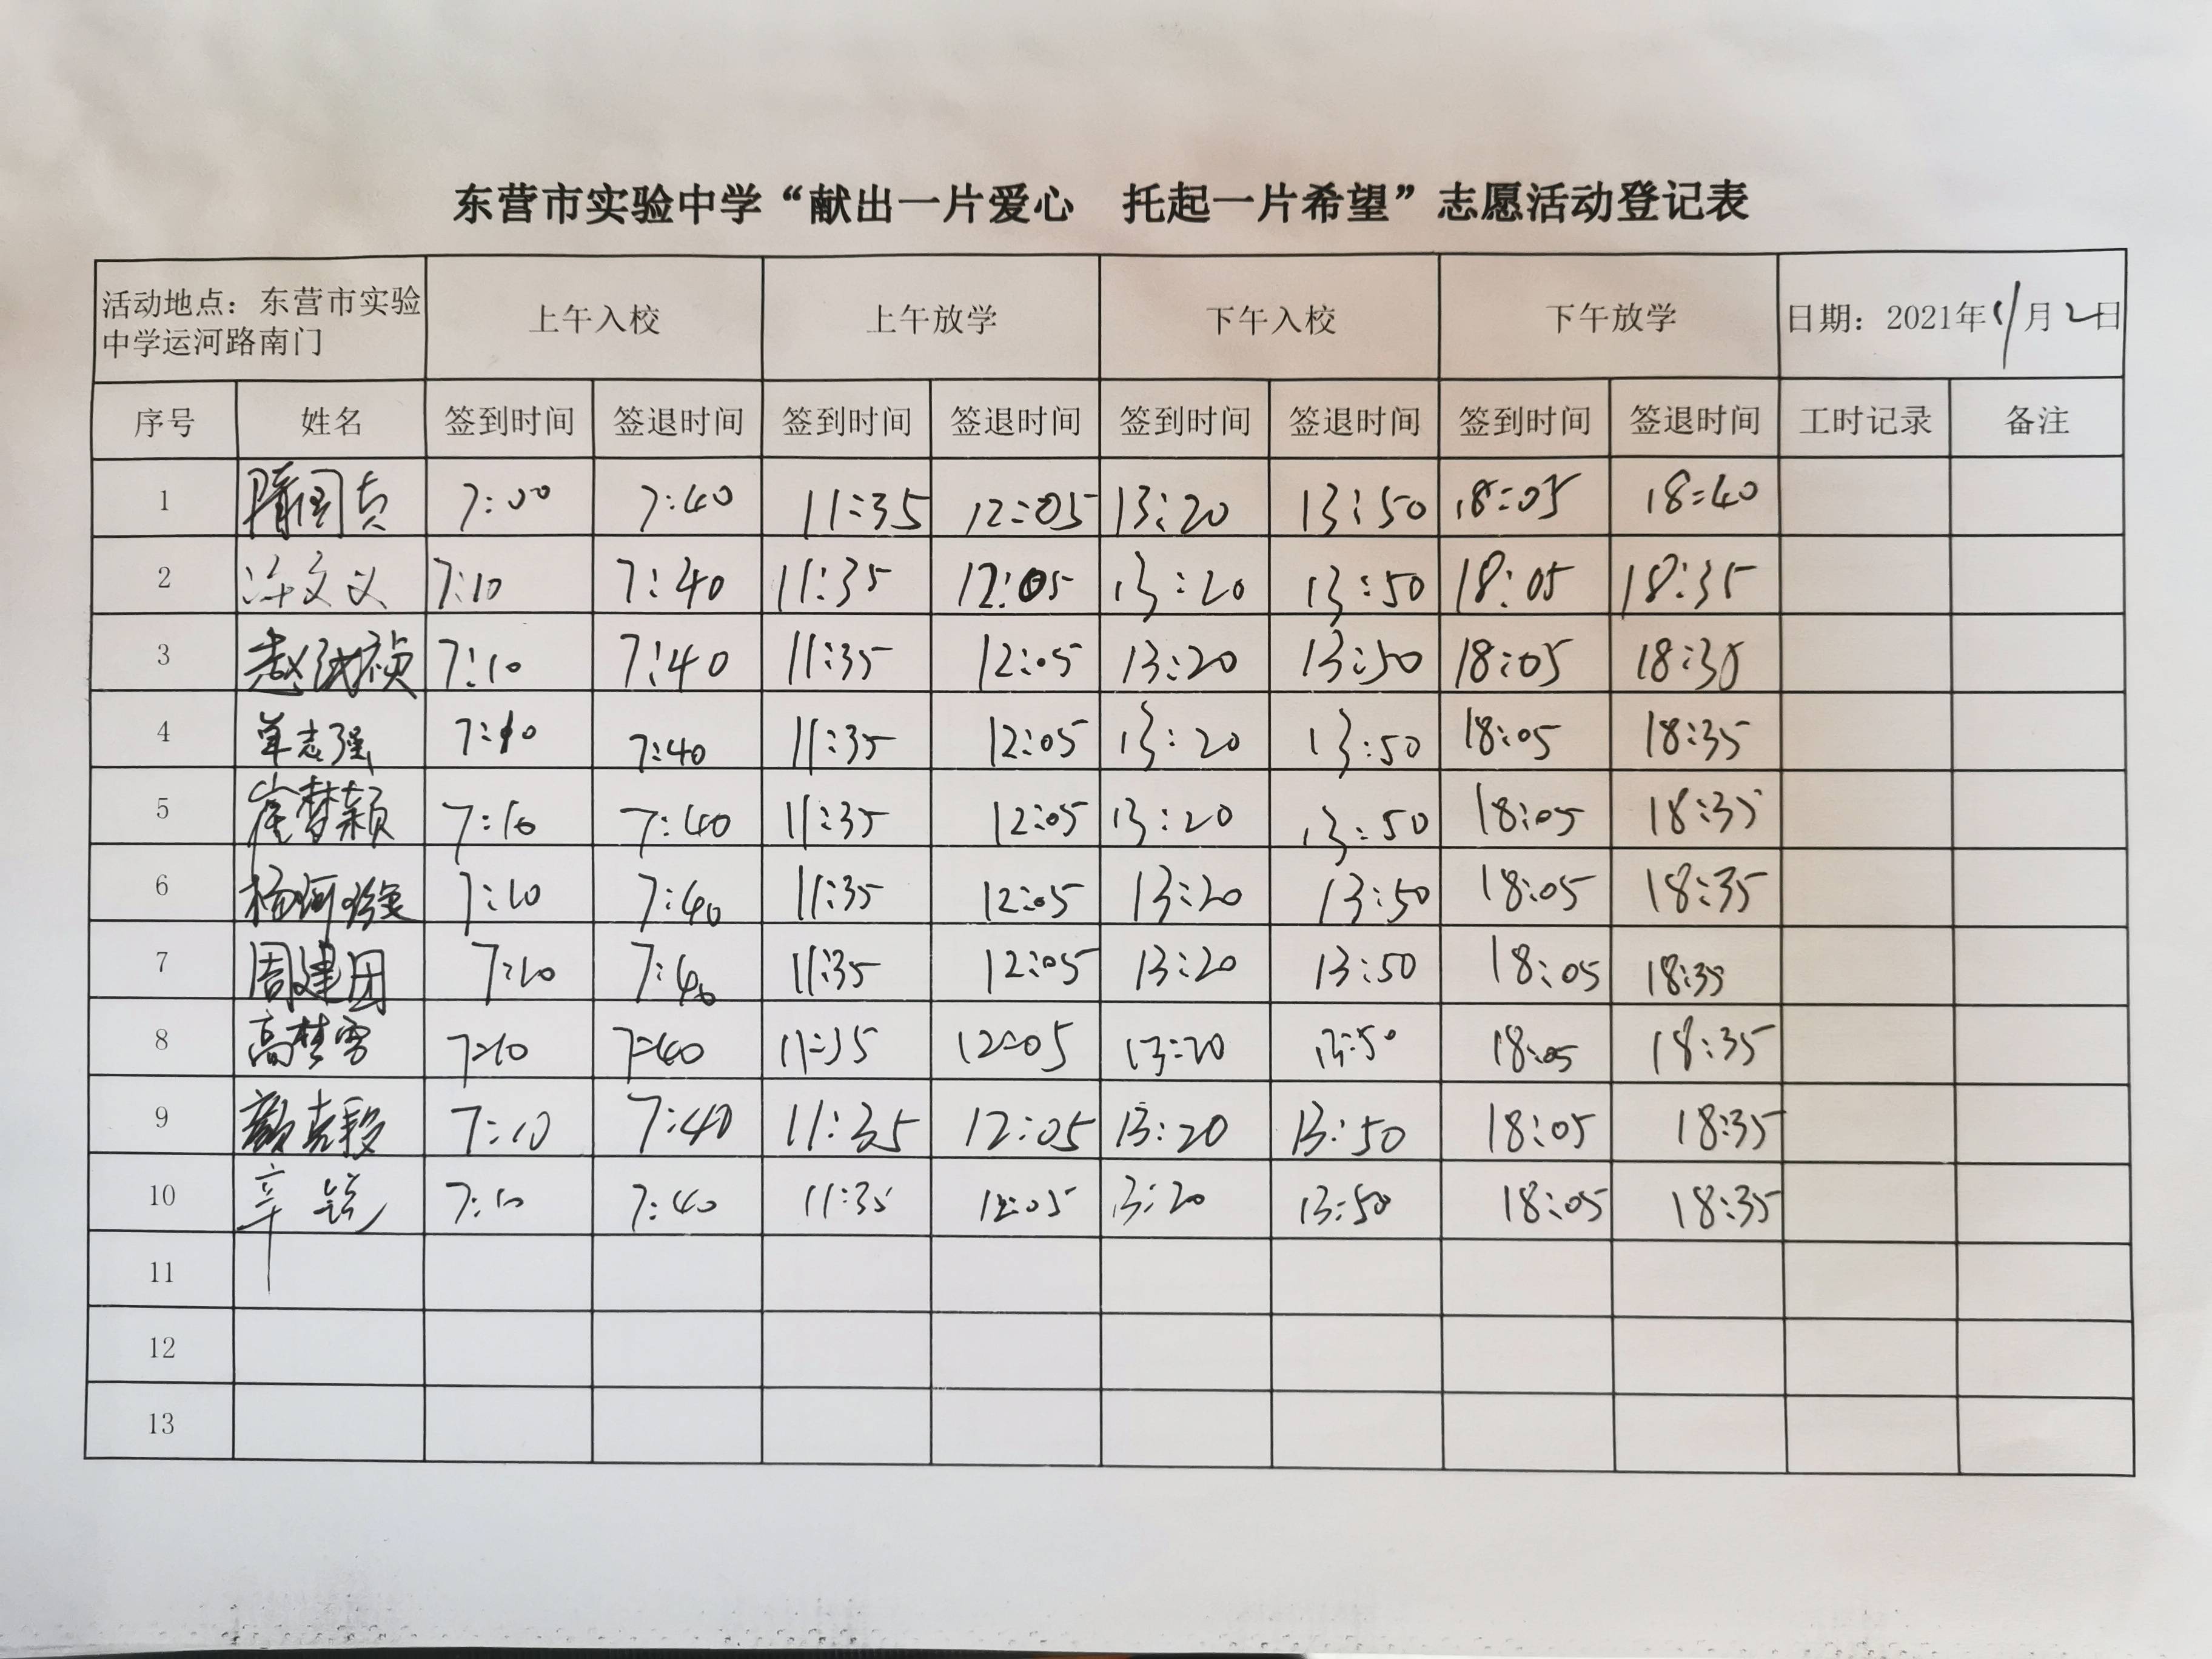 东营市实验中学“献出一片爱心 托起一片希望”志愿活动登记表
活动地点：东营市实验中学运河路南门 上午入校 上午放学 下午入校 下午放学 日期：2021年11月2日
序号 姓名 签到时间 签退时间 签到时间 签退时间 签到时间 签退时间 签到时间 签退时间 工时记录 备注
1 隋国贞 7:00 7:40 11:35 12:05 13:20 13:50 18:05 18:40
2 文义 7:10 7:40 11:35 12:05 13:20 13:50 18:05 18:35
3 赵 祯 7:10 7:40 11:35 12:05 13:20 13:50 18:05 18:35
4 单志强 7:10 7:40 11:35 12:05 13:20 13:50 18:05 18:35
5 崔梦颖 7:10 7:40 11:35 12:05 13:20 13:50 18:05 18:35
6 杨 7:10 7:40 11:35 12:05 13:20 13:50 18:05 18:35
7 周建团 7:10 7:40 11:35 12:05 13:20 13:50 18:05 18:35
8 高梦雪 7:10 7:40 11:35 12:05 13:20 13:50 18:05 18:35
9 颜克 7:10 7:40 11:35 12:05 13:20 13:50 18:05 18:35
10 辛锐 7:10 7:40 11:35 12:05 13:20 13:50 18:05 18:35
11
12
13